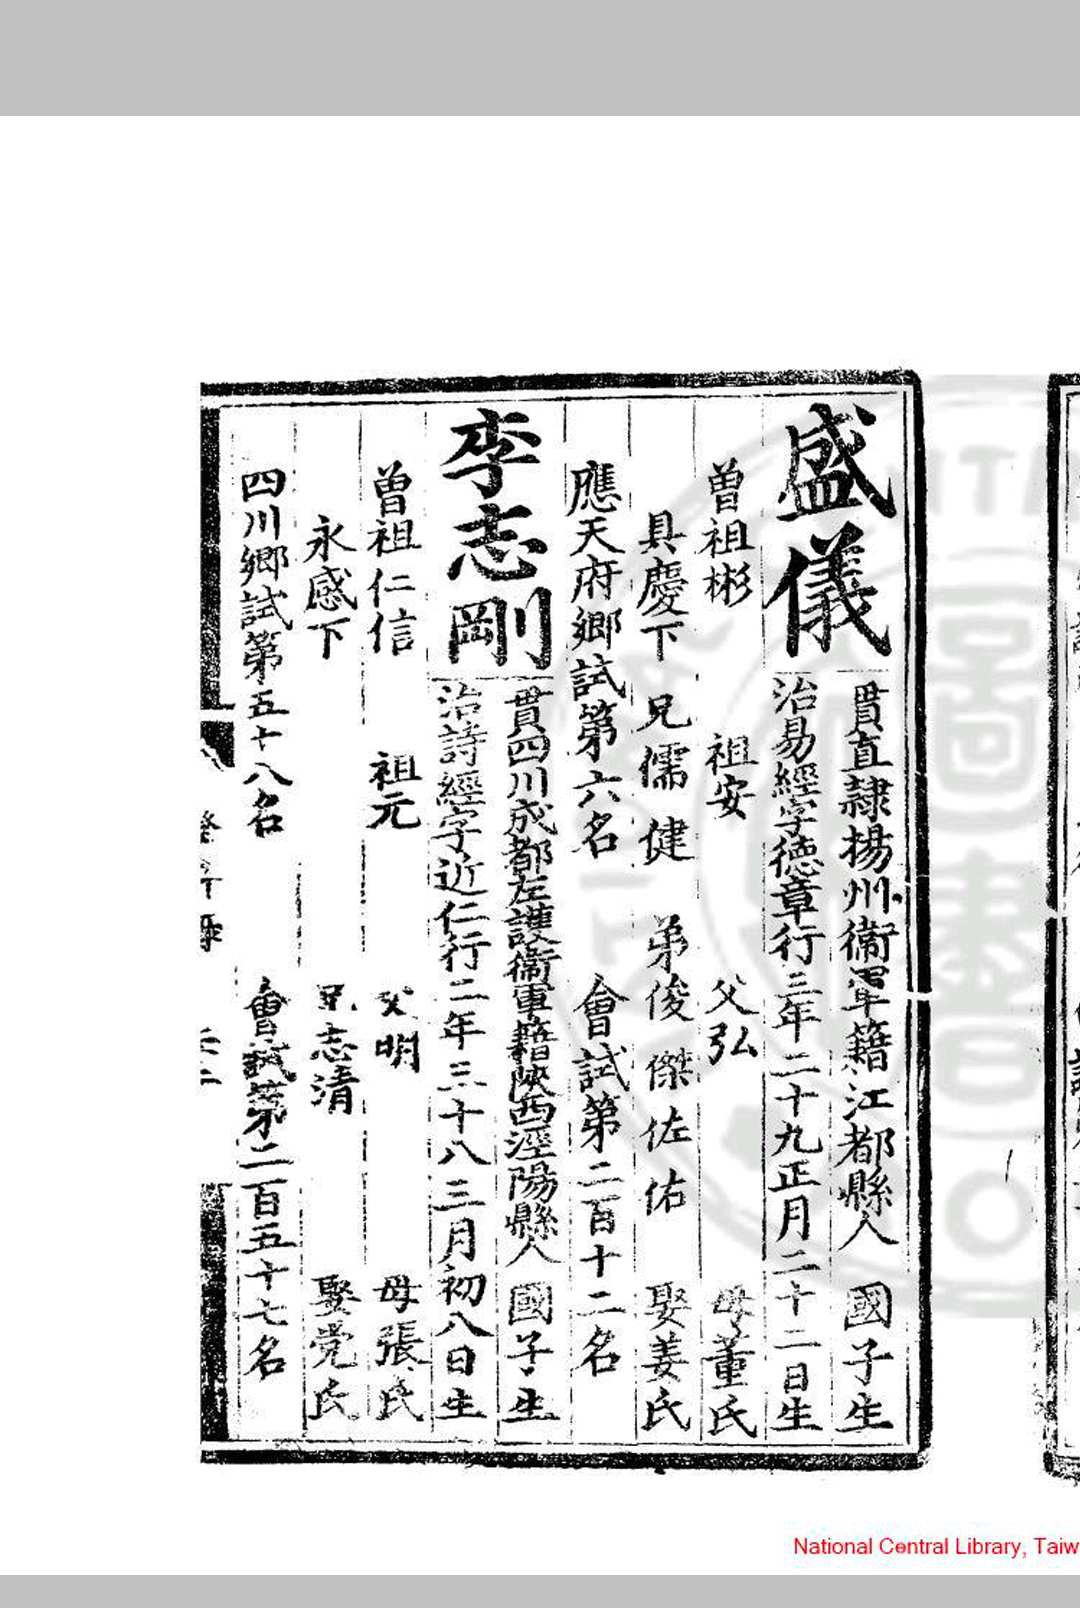 盛儀
貫直隸揚州衞軍籍江都縣人 國子生
治易經字德章行三年二十九正月二十二日生
曾祖彬 祖安 父弘 母董氏
具慶下 兄儒 健 弟俊 傑 佐 佑 娶姜氏
應天府鄉試第六名 會試第二百十二名
李志剛
貫四川成都左護衞軍籍陝西涇陽縣人 國子生
治詩經字近仁行二年三十八三月初八日生
曾祖仁信 祖元 父明 母張氏
永感下 兄志清 娶党氏
四川鄉試第五十八名 會試第二百五十七名
National Central Library, Taiw